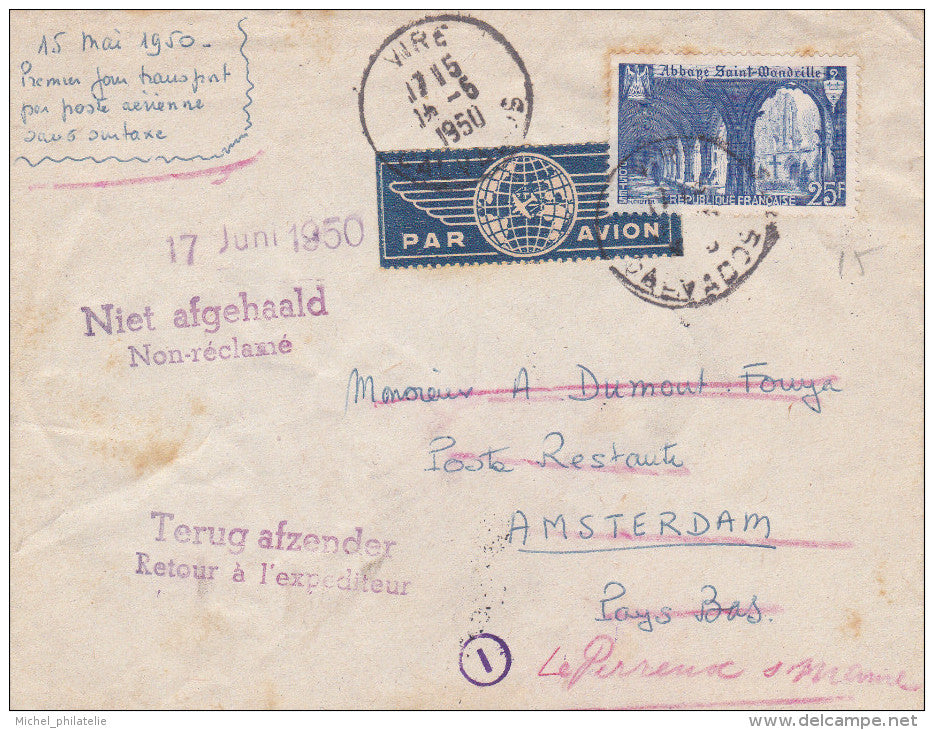 15 Mai 1950 -
Premier Jour transport
par poste aérienne
sans surtaxe
VIRE
17 15
15 -5
1950
CALVADOS
Abbaye Saint-Wandrille
POSTES
REPUBLIQUE FRANÇAISE
25F
PAR AVION
CALVADOS
15
17 Juni 1950
Niet afgehaald
Non-réclamé
Monsieur A Dumont Fouya
Poste Restante
AMSTERDAM
Pays Bas.
Terug afzender
Retour à l'expediteur
1
Le Perreux s Marne
Michel_philatelie
delcampe.net